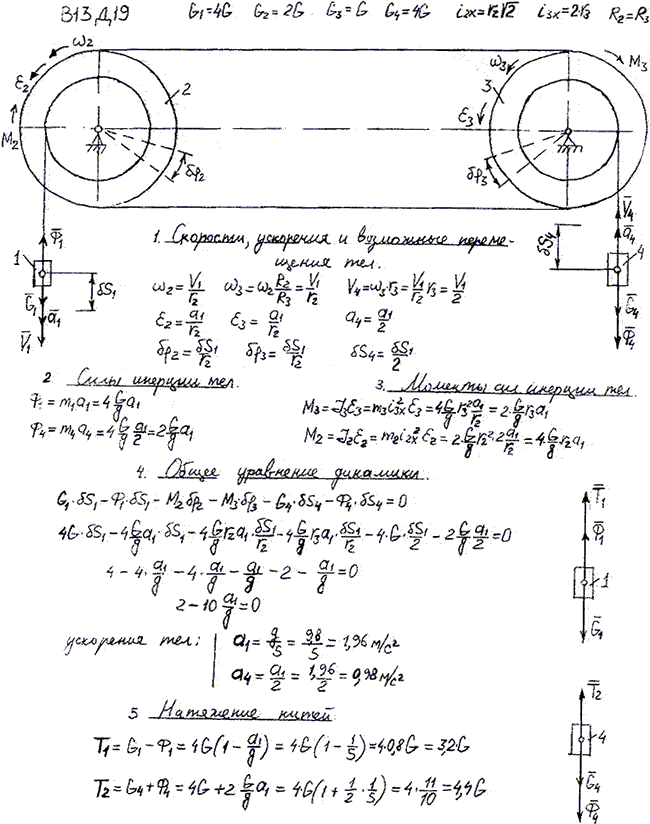 В13.Д19 G₁=4G G₂=2G G₃=G G₄=4G i₂ₓ=r₂√2 i₃ₓ=2·r₃ R₂=R₃
ω₂ ω₃ M₃
ε₂ 2 3 ε₃
M₂ δφ₂ δφ₃
V̄₄
Φ̄₁ δS₄ ā₄
1 4
δS₁
Ḡ₁ ā₁ Ḡ₄
V̄₁ Φ̄₄
1. Скорости, ускорения и возможные переме-
щения тел.
ω₂=V₁/r₂ ω₃=ω₂R₂/R₃=V₁/r₂ V₄=ω₃·r₃=V₁/r₂ r₃=V₁/2
ε₂=a₁/r₂ ε₃=a₁/r₂ a₄=a₁/2
δφ₂=δS₁/r₂ δφ₃=δS₁/r₂ δS₄=δS₁/2
2 Силы инерции тел.
Φ₁=m₁a₁=4G/g a₁
Φ₄=m₄a₄=4G/g a₁/2=2G/g a₁
3. Моменты сил инерции тел.
M₃=J₃ε₃=m₃i₃ₓ²ε₃=4G/g r₃²a₁/r₂=2·G/g r₃a₁
M₂=J₂ε₂=m₂i₂ₓ²ε₂=2G/g r₂²·2a₁/r₂=4G/g r₂a₁
4. Общее уравнение динамики.
G₁·δS₁-Φ₁·δS₁-M₂·δφ₂-M₃·δφ₃-G₄·δS₄-Φ₄·δS₄=0
4G·δS₁-4G/g a₁·δS₁-4G/g r₂a₁·δS₁/r₂-4G/g r₃a₁·δS₁/r₂-4·G·δS₁/2-2G/g a₁/2=0
4-4·a₁/g-4·a₁/g-a₁/g-2-a₁/g=0
2-10 a₁/g=0
ускорения тел: a₁=g/5=9,8/5=1,96 м/с²
a₄=a₁/2=1,96/2=0,98 м/с²
5 Натяжение нитей
T̄₁=G₁-Φ₁=4G(1-a₁/g)=4G(1-1/5)=4·0,8G=3,2·G
T̄₂=G₄+Φ₄=4G+2G/g a₁=4G(1+1/2·1/5)=4·11/10=4,4G
T̄₁
Φ̄₁
1
Ḡ₁
T̄₂
4
Ḡ₄
Φ̄₄